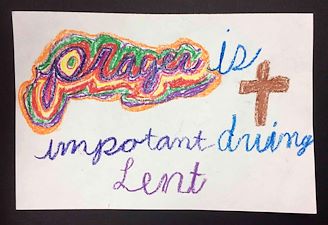 prayer is
important druing
Lent